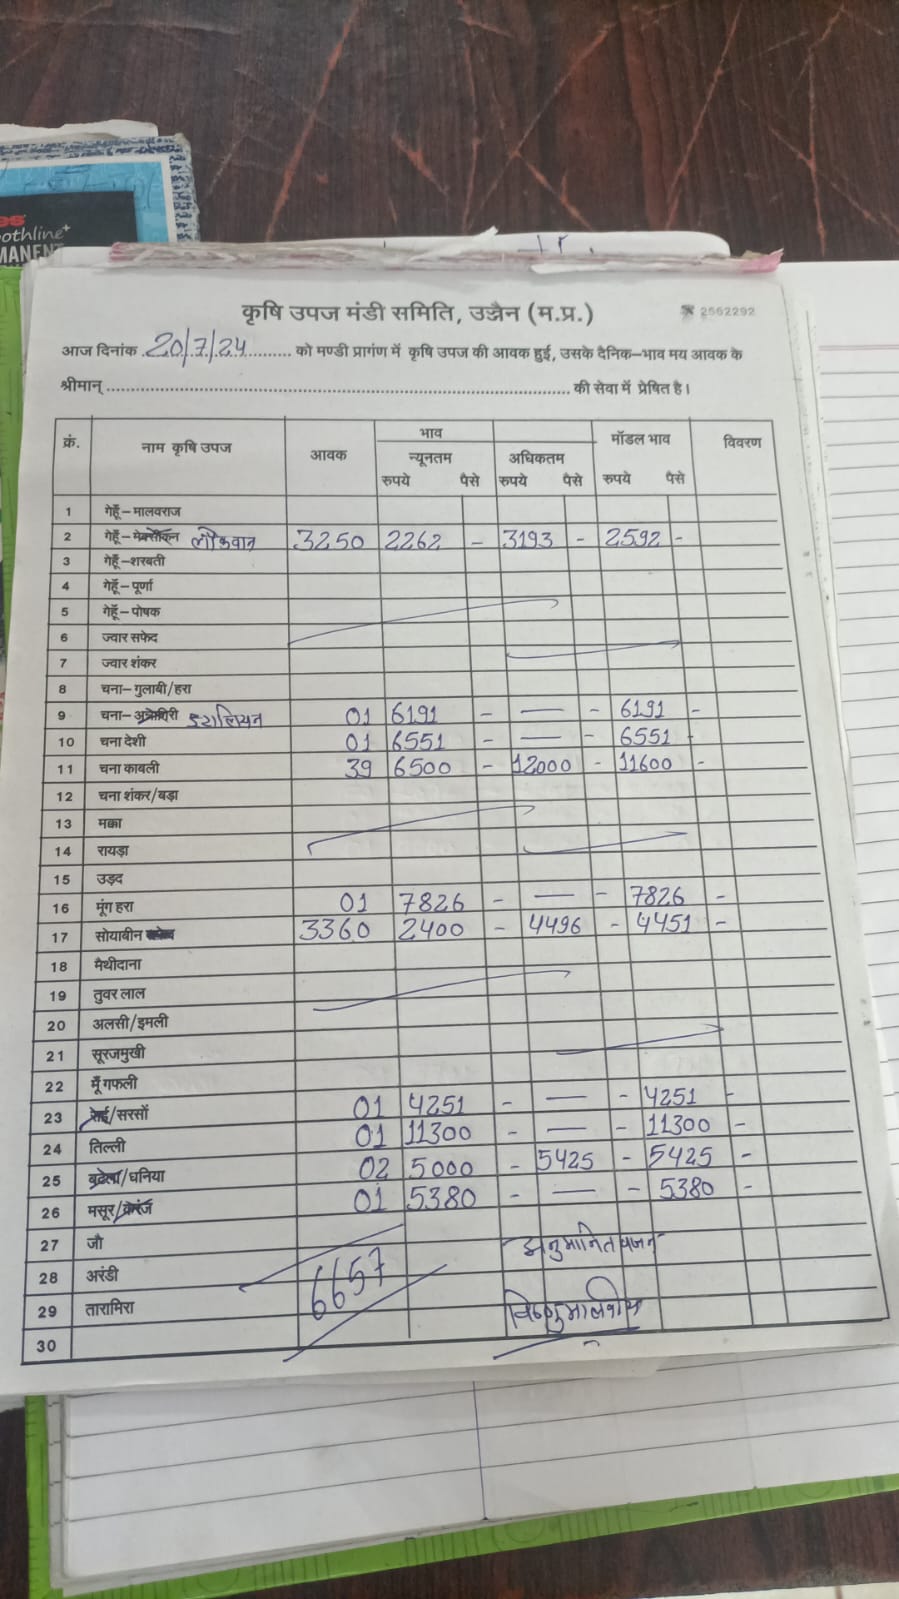 othline+
MANENT
कृषि उपज मंडी समिति, उज्जैन (म.प्र.) 2562292
आज दिनांक 20/7/24 को मण्डी प्रागंण में कृषि उपज की आवक हुई, उसके दैनिक-भाव मय आवक के
श्रीमान् की सेवा में प्रेषित है।
क्रं. नाम कृषि उपज आवक भाव मॉडल भाव विवरण
न्यूनतम अधिकतम
रुपये पैसे रुपये पैसे रुपये पैसे
1 गेहूँ-मालवराज
2 गेहूँ-मेक्सीकन लोकवान 3250 2262 - 3193 - 2592 -
3 गेहूँ-शरबती
4 गेहूँ-पूर्णा
5 गेहूँ-पोषक
6 ज्वार सफेद
7 ज्वार शंकर
8 चना-गुलाबी/हरा
9 चना- इटालियन 01 6191 - — - 6191 -
10 चना देशी 01 6551 - — - 6551 -
11 चना काबली 39 6500 - 12000 - 11600 -
12 चना शंकर/बड़ा
13 मक्का
14 रायड़ा
15 उड़द
16 मूंग हरा 01 7826 - — - 7826 -
17 सोयाबीन 3360 2400 - 4496 - 4451 -
18 मैथीदाना
19 तुवर लाल
20 अलसी/इमली
21 सूरजमुखी
22 मूँगफली
23 /सरसों 01 4251 - — - 4251 -
24 तिल्ली 01 11300 - — - 11300 -
25 बटला/धनिया 02 5000 - 5425 - 5425 -
26 मसूर/करंज 01 5380 - — - 5380 -
27 जौ अनुमानित वजन
28 अरंडी 6657
29 तारामिरा विष्णु मालवीय
30